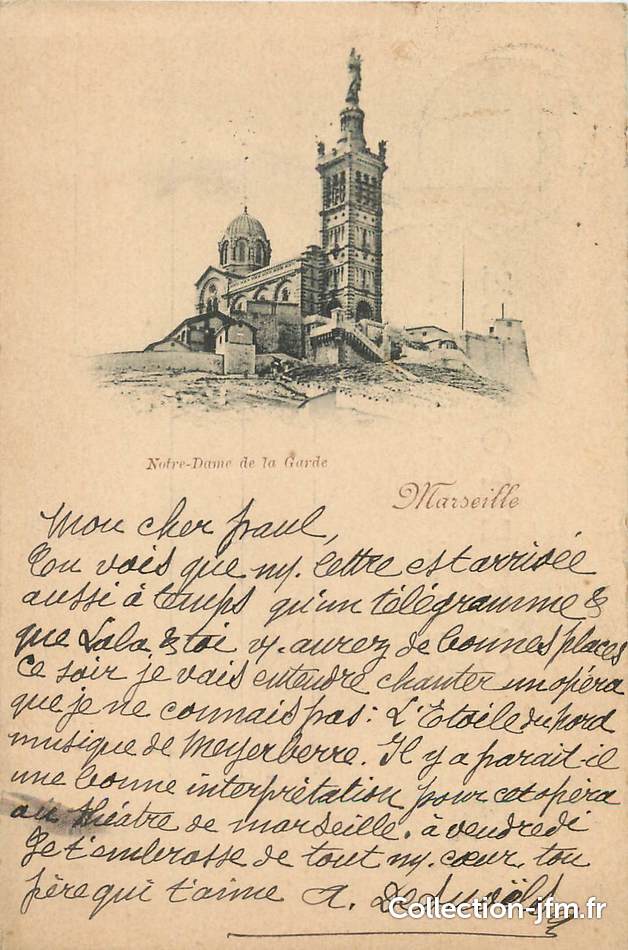 Notre-Dame de la Garde
Marseille
Mon cher Paul,
Tu vois que m. lettre est arrivée
aussi à temps qu'un télégramme &
que Lala & toi v. aurez de bonnes places
ce soir je vais entendre chanter un opéra
que je ne connais pas: L'Etoile du nord
musique de Meyerberre. Il y a parait-il
une bonne interprétation pour cet opéra
au théâtre de marseille. à vendredi
Je t'embrasse de tout m. cœur. ton
père qui t'aime A.
Collection-jfm.fr